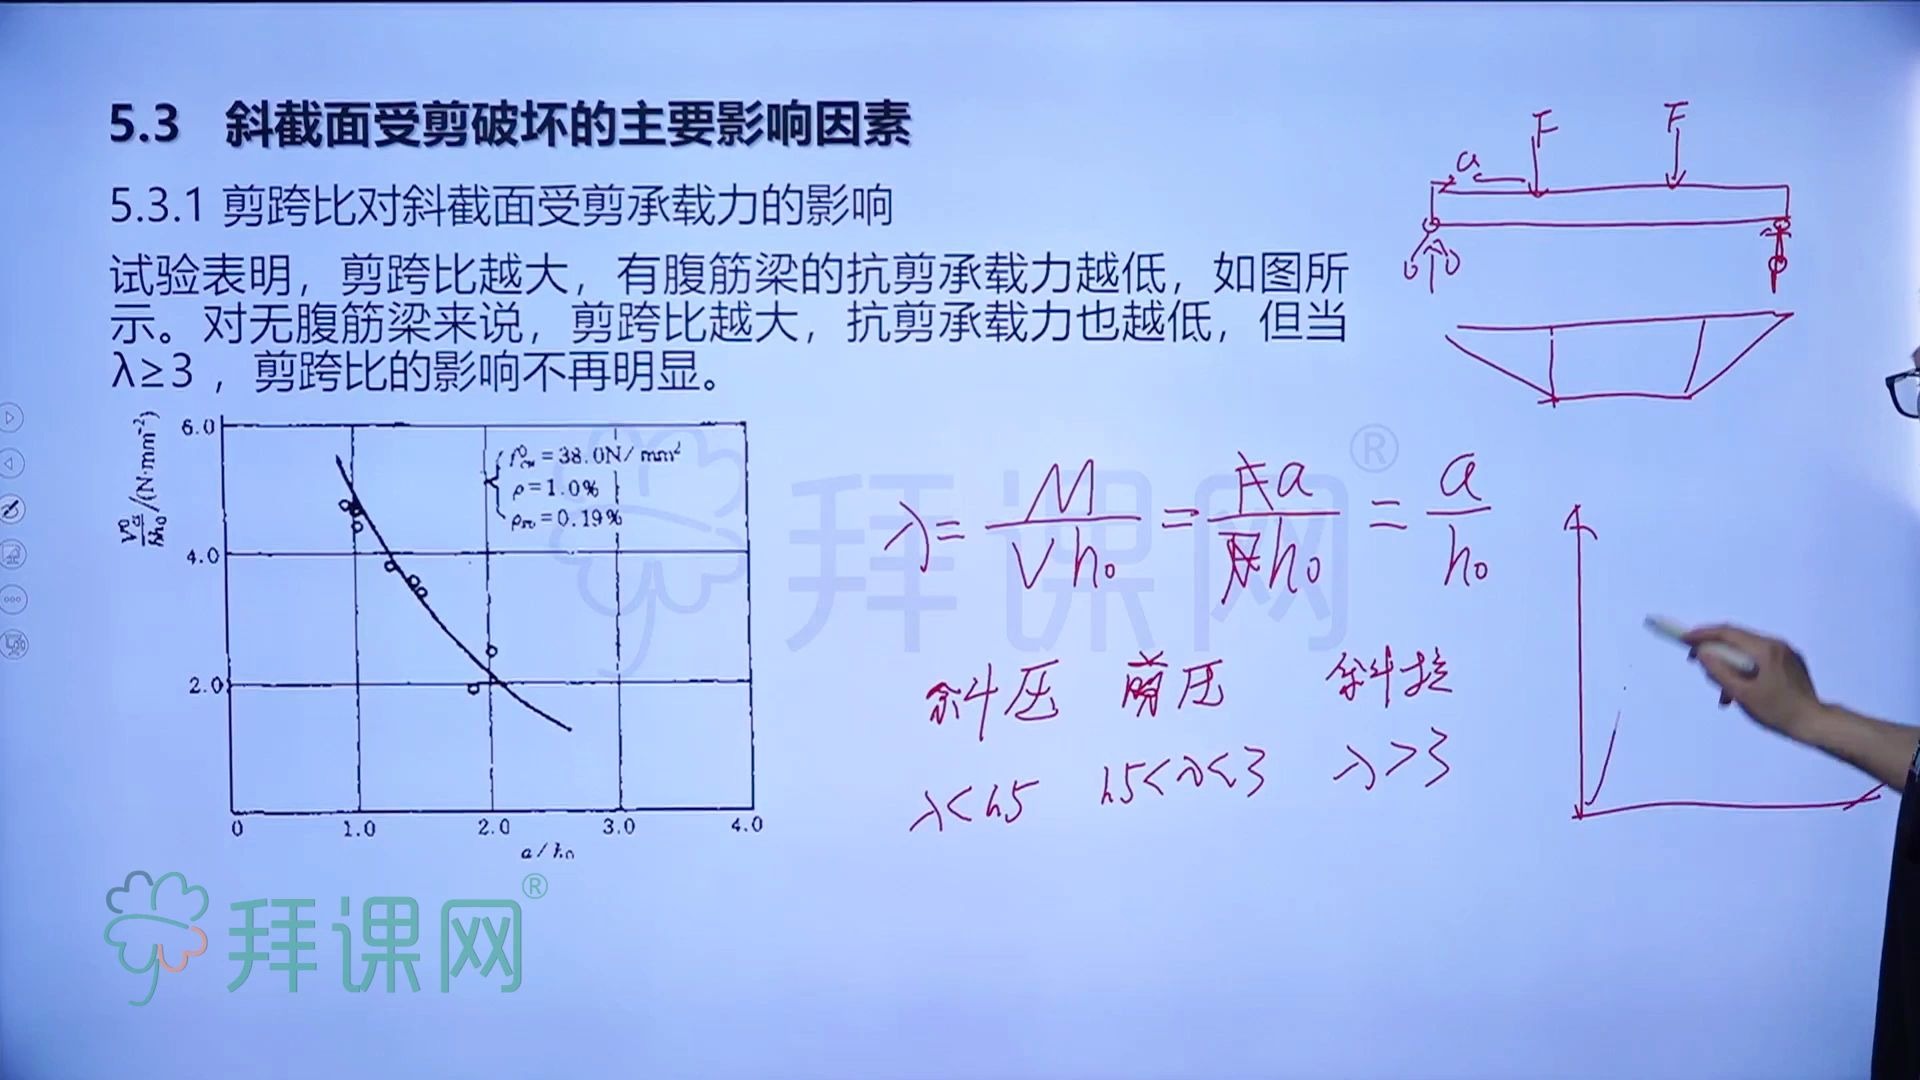 5.3 斜截面受剪破坏的主要影响因素
5.3.1 剪跨比对斜截面受剪承载力的影响
试验表明，剪跨比越大，有腹筋梁的抗剪承载力越低，如图所
示。对无腹筋梁来说，剪跨比越大，抗剪承载力也越低，但当
λ≥3，剪跨比的影响不再明显。
F F
a
6.0
4.0
2.0
0 1.0 2.0 3.0 4.0
a/h₀
=38.0N/mm²
ρ=1.0%
=0.19%
λ= M/Vh₀ = Fa/Fh₀ = a/h₀
斜压 剪压 斜拉
λ<1.5 1.5<λ<3 λ>3
拜课网®
拜课网®